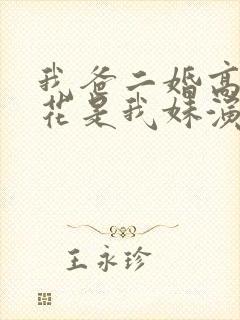 我爸二婚高
花是我妹演
王永珍